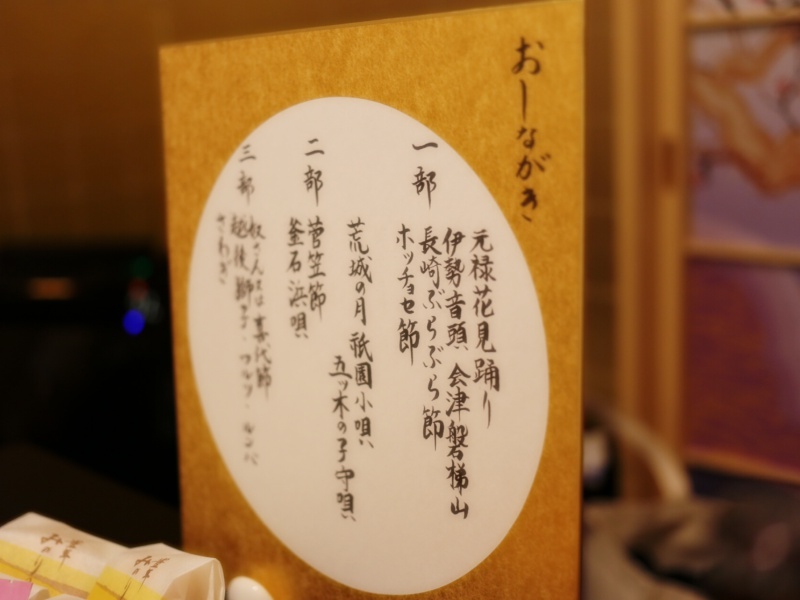 おしながき
一部
元禄花見踊り
伊勢音頭 会津磐梯山
長崎ぶらぶら節
ホッチョセ節
二部
荒城の月 祇園小唄
五ツ木の子守唄
菅笠節
釜石浜唄
三部
奴さん
越後獅子・ワルツ・ルンバ
さわぎ